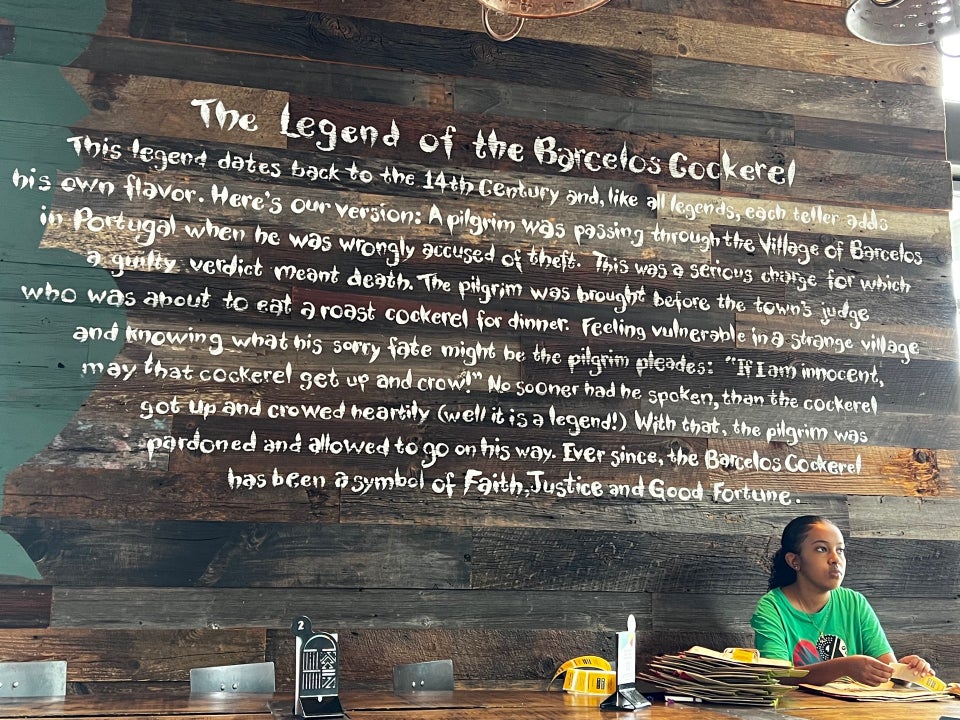 The Legend of the Barcelos Cockerel
This legend dates back to the 14th Century and, like all legends, each teller adds
his own flavor. Here's our version: A pilgrim was passing through the Village of Barcelos
in Portugal when he was wrongly accused of theft. This was a serious charge for which
a guilty verdict meant death. The pilgrim was brought before the town's judge
who was about to eat a roast cockerel for dinner. Feeling vulnerable in a strange village
and knowing what his sorry fate might be the pilgrim pleades: "If I am innocent,
may that cockerel get up and crow!" No sooner had he spoken, than the cockerel
got up and crowed heartily (well it is a legend!) With that, the pilgrim was
pardoned and allowed to go on his way. Ever since, the Barcelos Cockerel
has been a symbol of Faith, Justice and Good Fortune.
2